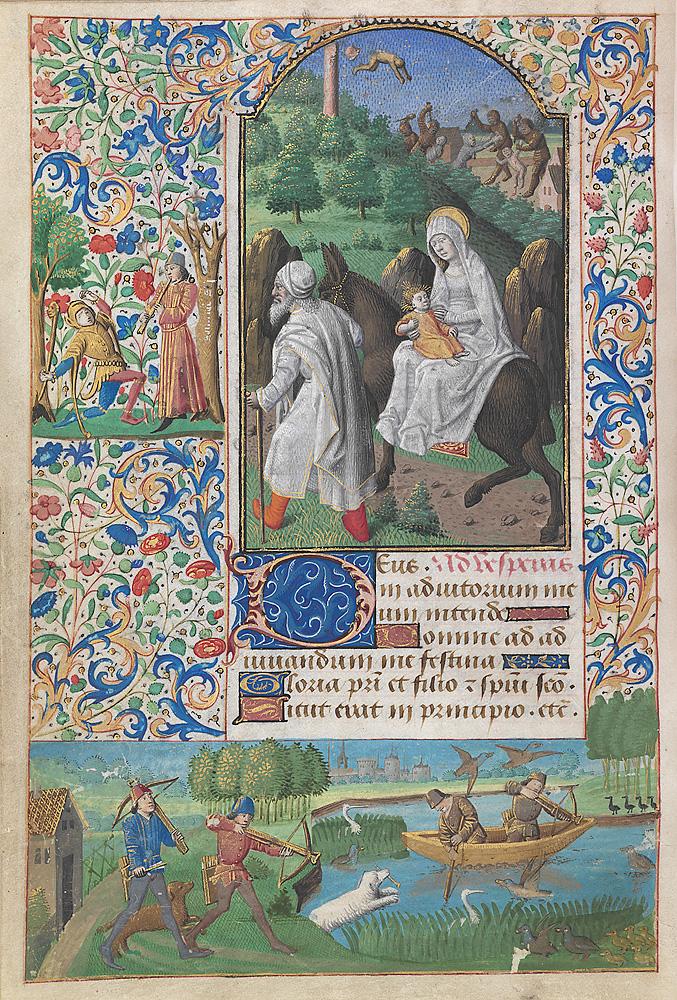 Deus. Ad vesperas
in adiutorium me
um intende
Domine ad ad
iuuandum me festina
Gloria pri et filio ⁊ spiui sco.
Sicut erat in principio. etc.